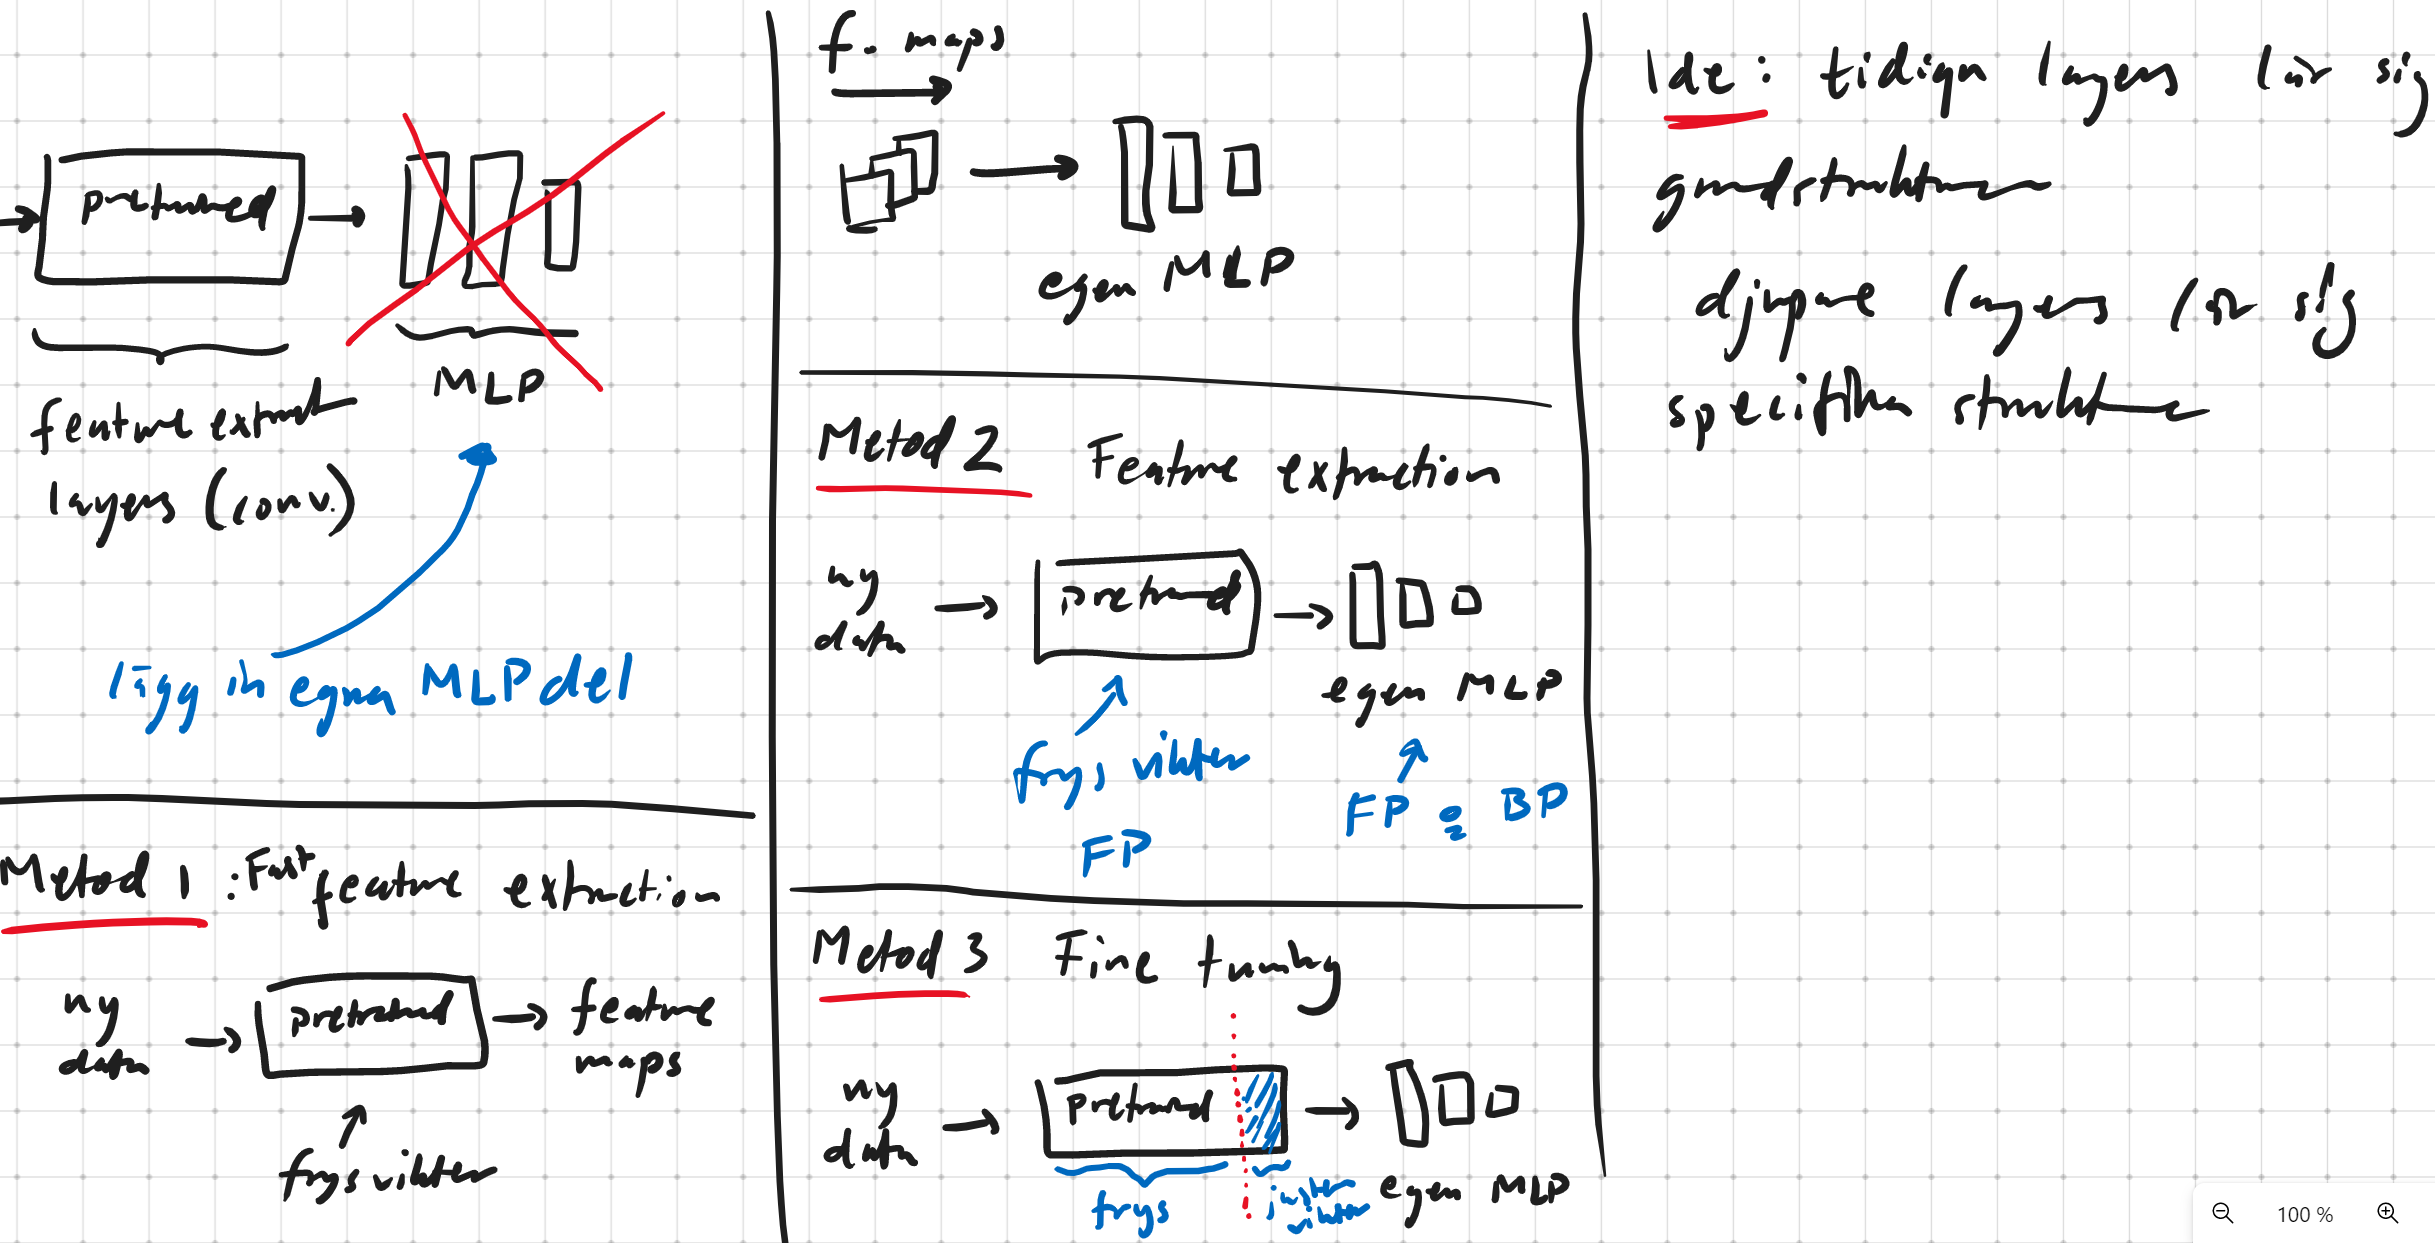 pretrained
MLP
feature extract
layers (conv.)
lägg in egna MLP del
Metod 1 : Fast feature extraction
ny
data
pretrained
feature
maps
frys vikter
f. maps
egen MLP
Metod 2 Feature extraction
ny
data
pretrained
egen MLP
frys vikter
FP
FP & BP
Metod 3 Fine tuning
ny
data
pretrained
egen MLP
frys
justera
vikter
Ide: tidiga layers lär sig
grundstrukturer
djupare layers lär sig
specifika strukturer
100 %